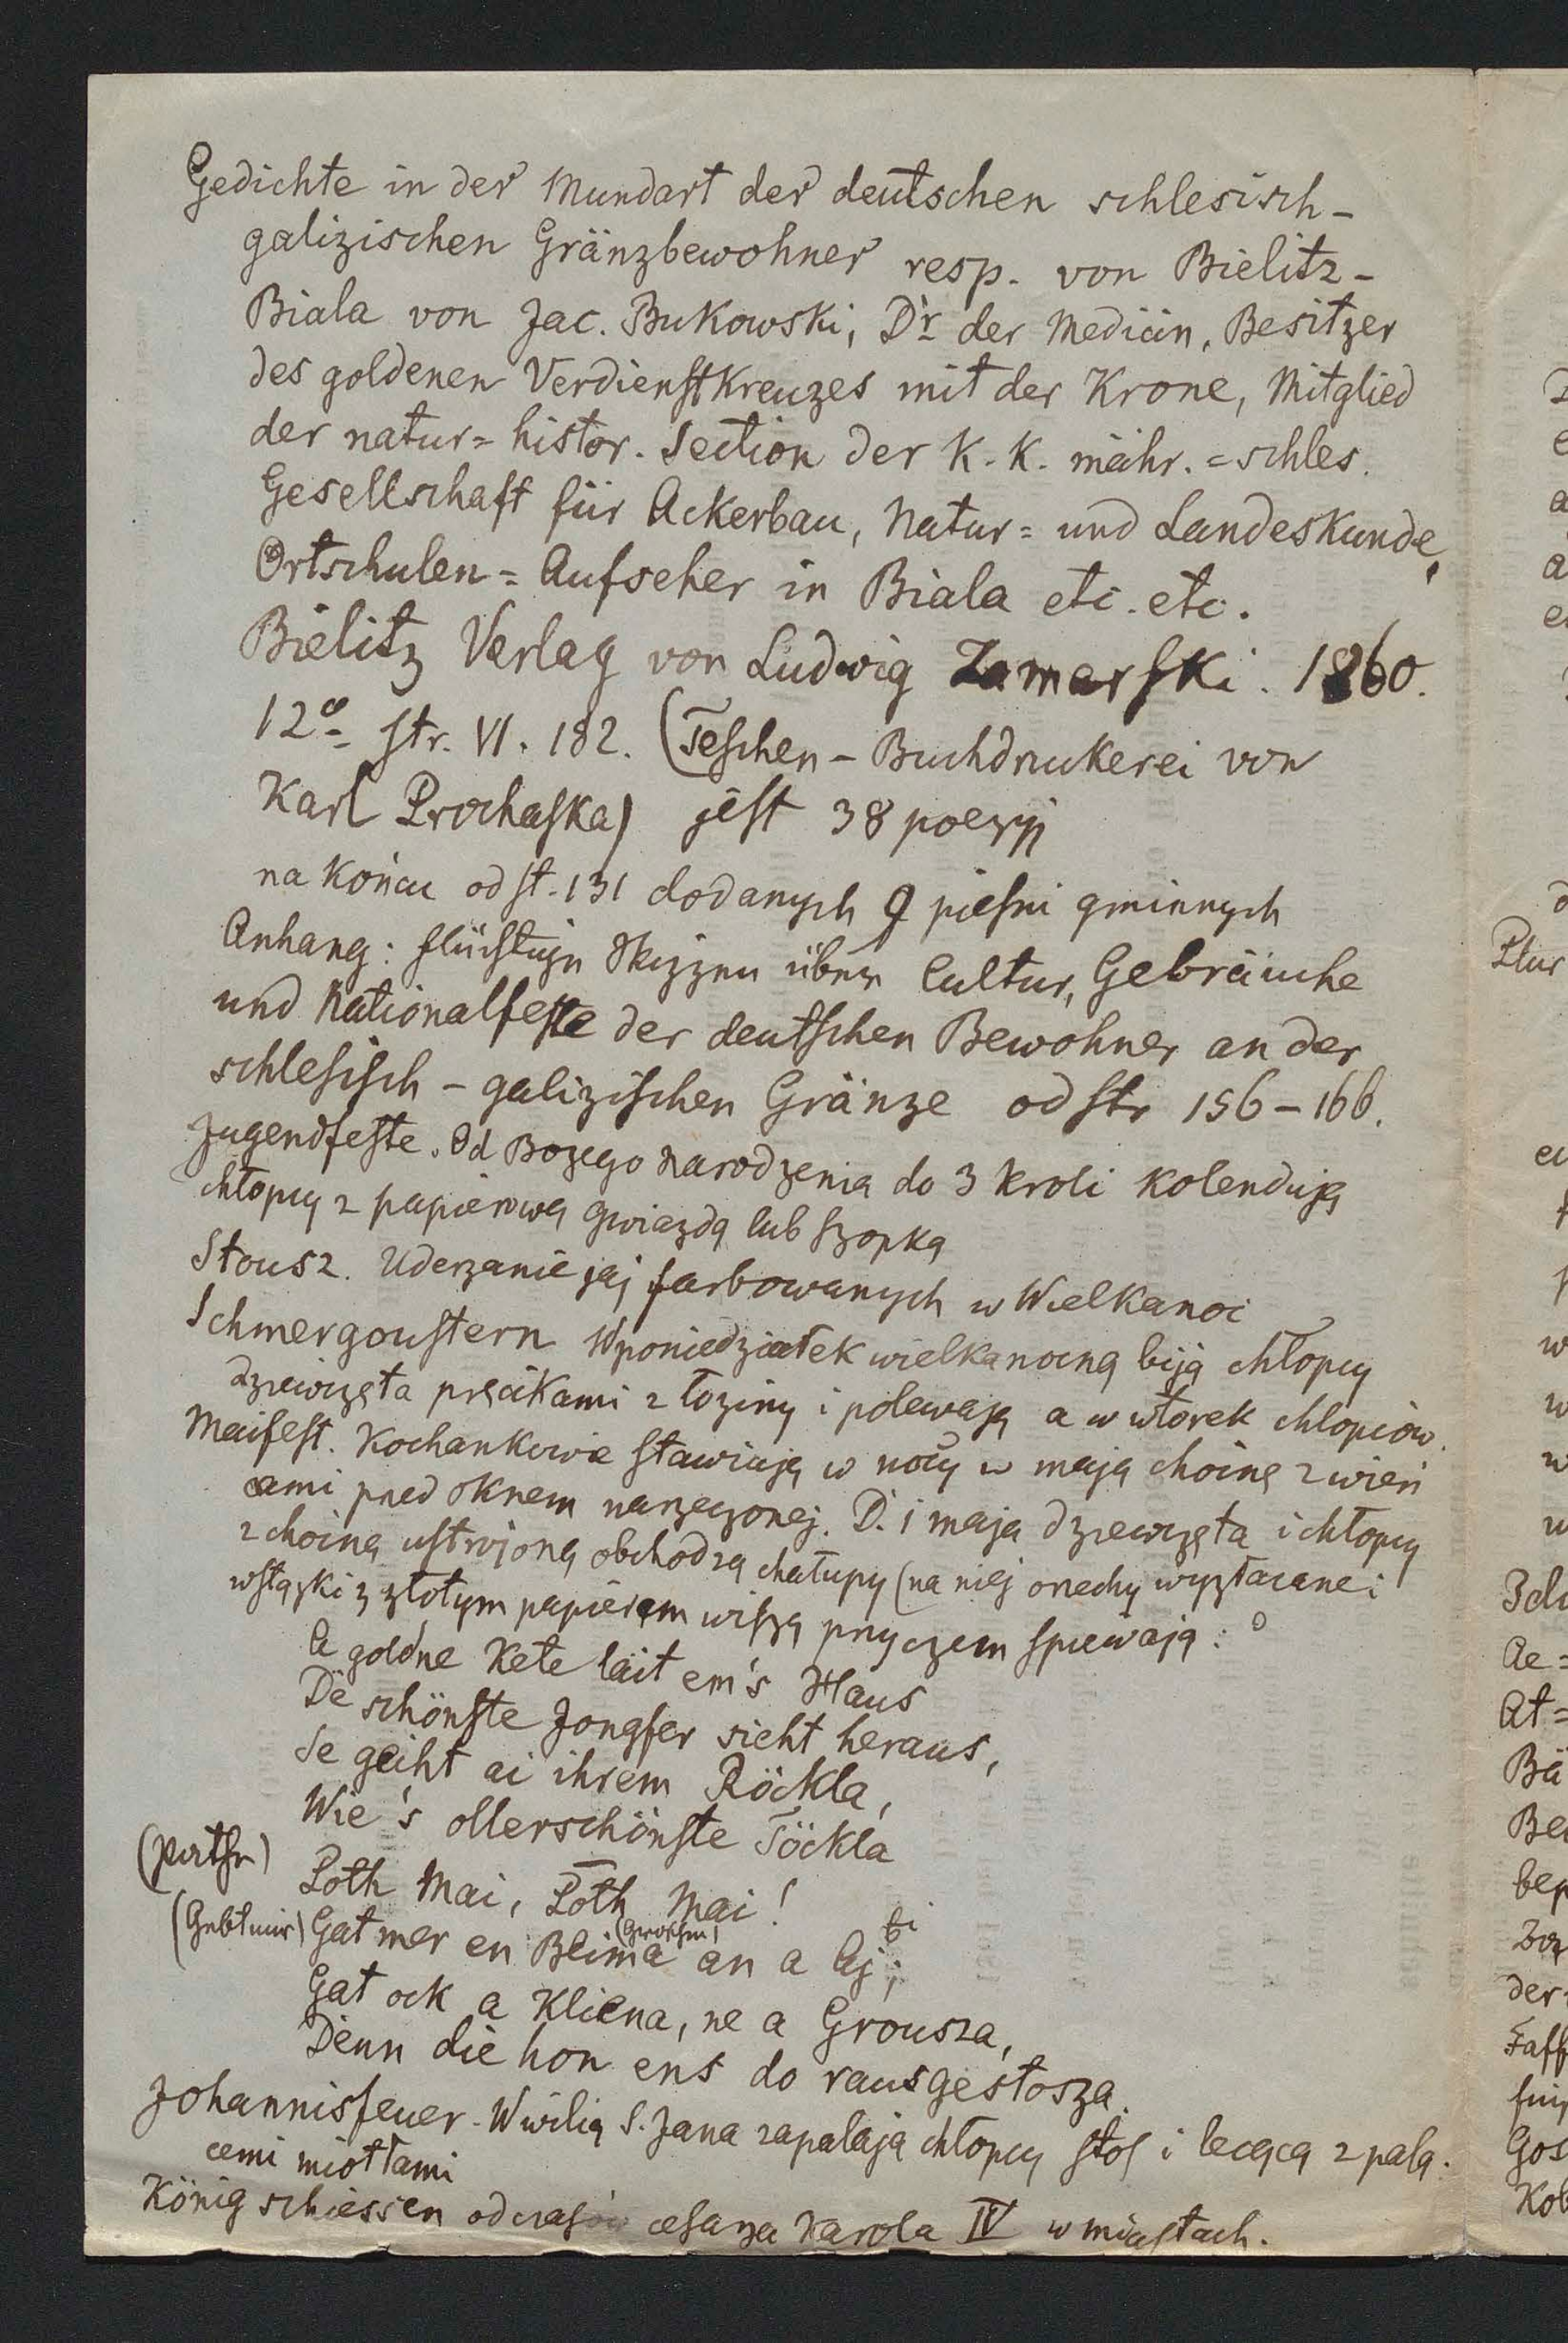 Gedichte in der Mundart der deutschen schlesisch-
galizischen Gränzbewohner resp. von Bielitz-
Biala von Jac. Bukowski, Dr der Medicin, Besitzer
des goldenen Verdienstkreuzes mit der Krone, Mitglied
der natur=histor. Section der K. K. mähr.=schles.
Gesellschaft für Ackerbau, Natur= und Landeskunde,
Ortschulen=Aufseher in Biala etc. etc.
Bielitz Verlag von Ludwig Zamarski. 1860.
12o str. VI. 182. (Teschen - Buchdruckerei von
Karl Prochaska) jest 38 poezyj
na końcu od st. 131 dodanych 9 pieśni gminnych
Anhang: flüchtige Skizzen über Cultur, Gebräuche
und Nationalfeste der deutschen Bewohner an der
schlesisch - galizischen Gränze od str 156-166.
Jugendfeste. Od Bożego Narodzenia do 3 kroli kolendują
chłopcy z papierową gwiazdą lub szopką
Stousz. Uderzanie jaj farbowanych w Wielkanoc
Schmergoustern W poniedziałek wielkanocną biją chłopcy
dziewczęta pręcikami z łoziny i polewają a w wtorek chlopców.
Maifest. Kochankowie stawiają w nocy w mają choinę z wień
cami pred oknem narzeczonej. D. 1 maja dziewczęta i chłopcy
z choiną ustrojoną obchodzą chałupy (na niej orzechy wyzłacane i
wstążki z złotym papierem wiszą przyczem śpiewają:
A goldne Kete läit em's Haus
De schönste Jongfer sieht heraus,
Se geiht ai ihrem Röckla,
Wie 's ollerschönste Töckla
Poth Mai, Poth Mai!
(Gebt mir) Gat mer en Beima (Groschen) an a Aj;
Gat ock a Kliena, ne a Grousza,
Denn die hon ens do rausgestosza.
Johannisfeuer - W wilią S. Jana zapalają chłopcy stos i lecącą z palą.
cemi miotłami
König schiessen od czasów cesarza Karola IV w miastach.